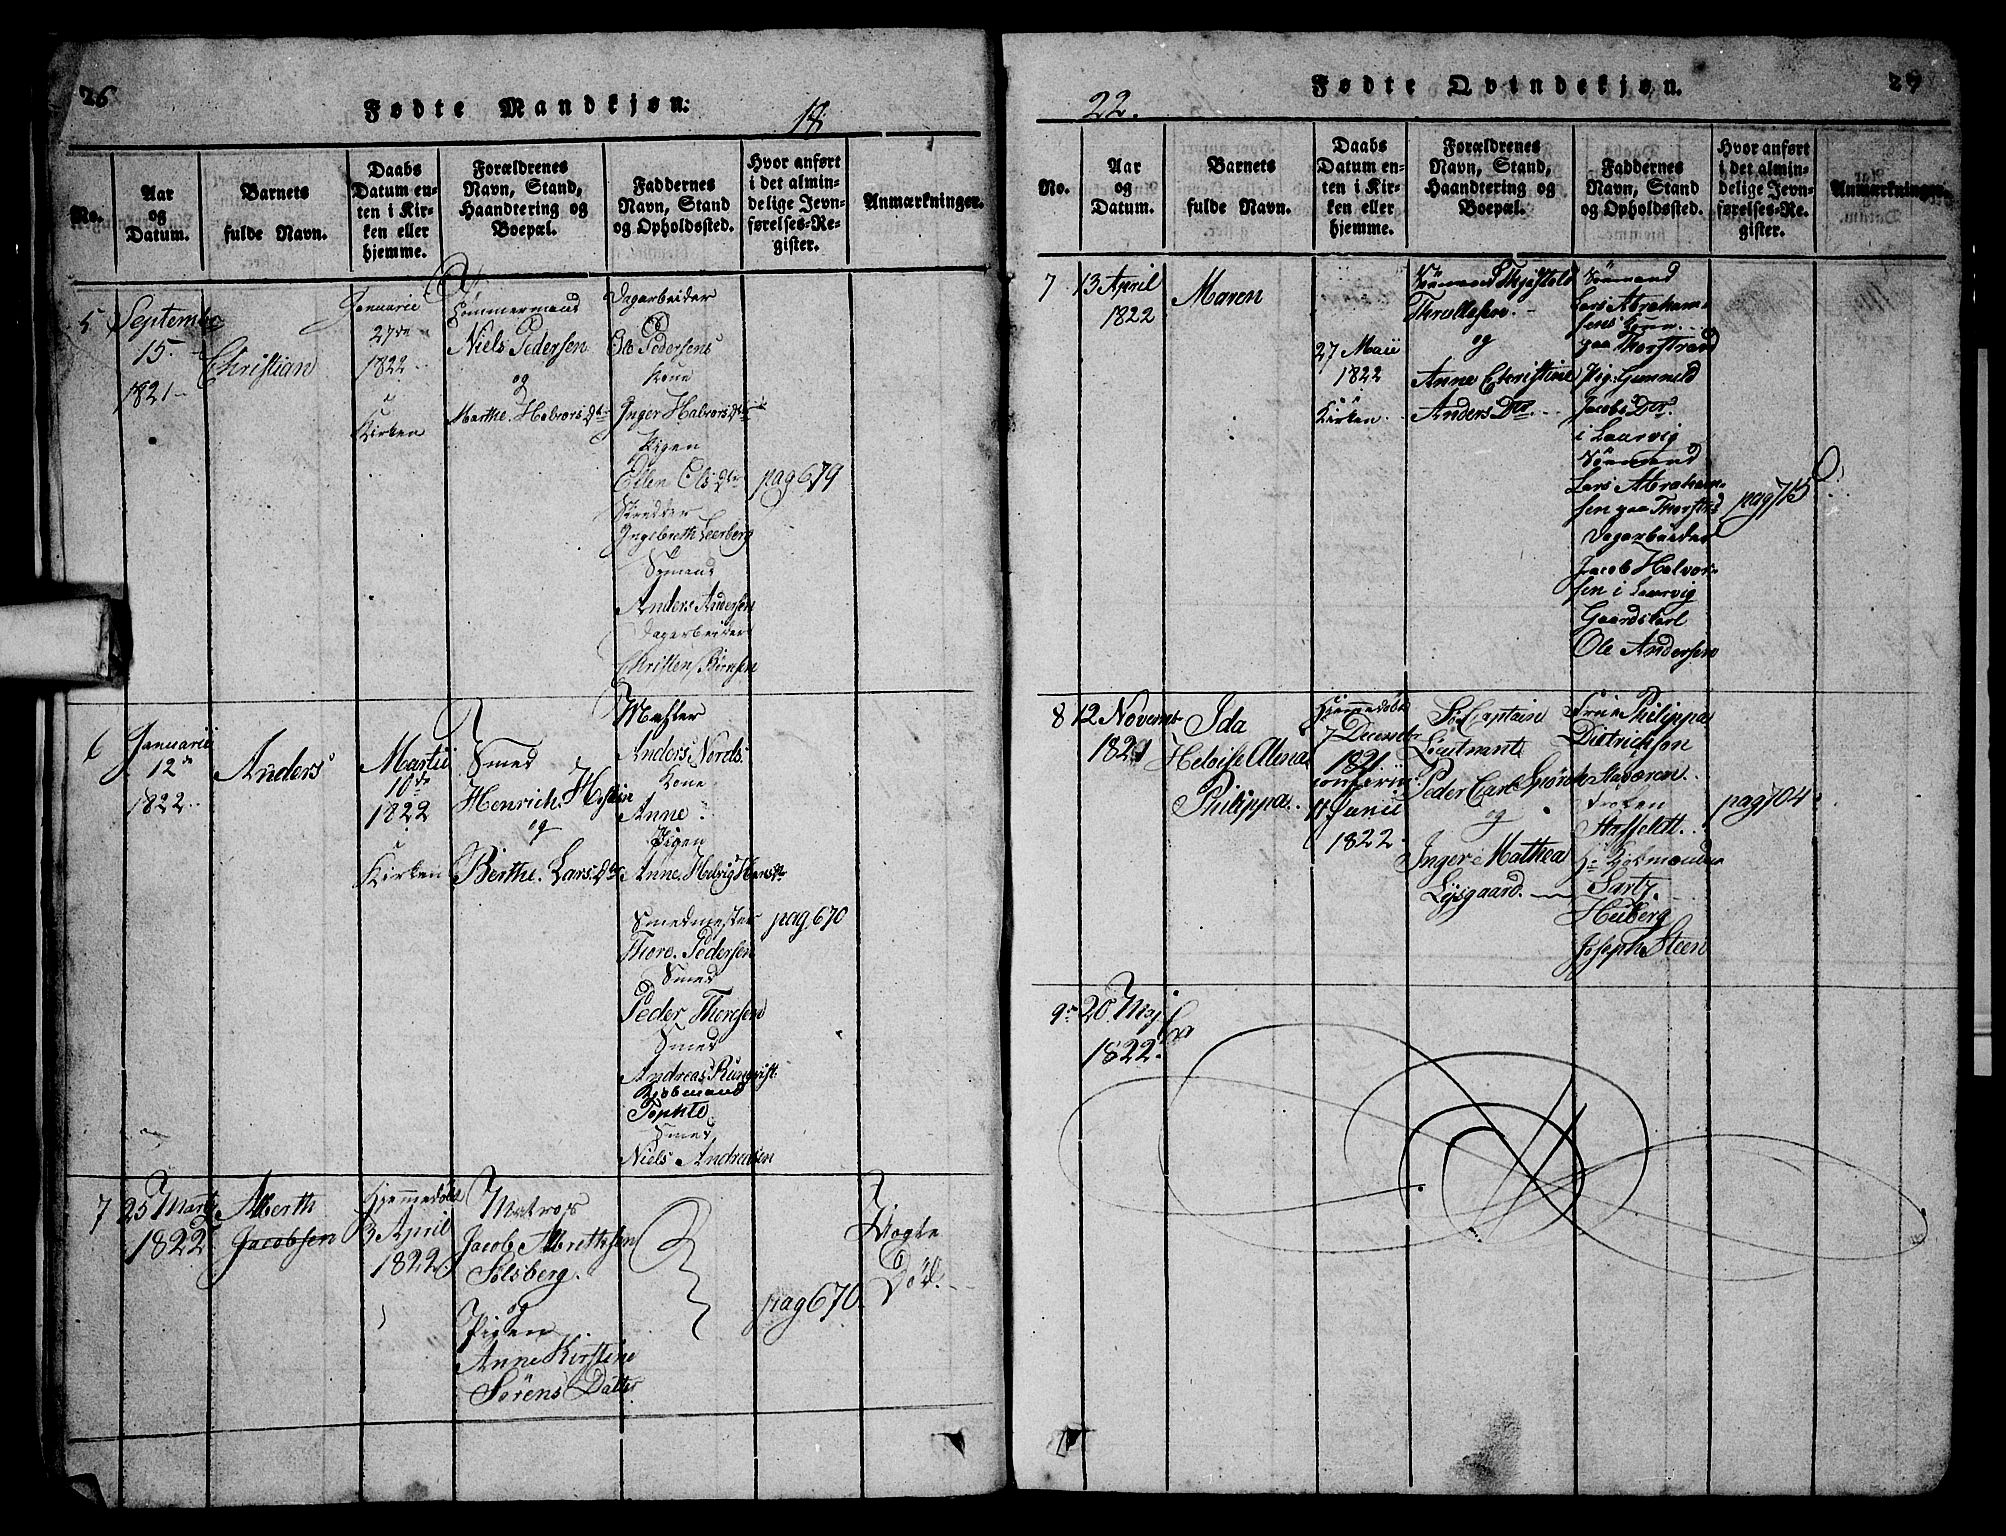 26
Fødte Mandkjøn.
18
No.
Aar
og
Datum.
Barnets
fulde Navn.
Daabs
Datum en-
ten i Kir-
ken eller
hjemme.
Forældrenes
Navn, Stand,
Haandtering og
Boepæl.
Faddernes
Navn, Stand
og Opholdssted.
Hvor anført
i det almin-
delige Jevn-
førelses-Re-
gister.
Anmærkninger.
5
September
15
1821
Christian
Januarie
27de
1822
i
Kirken
Tømmermand
Niels Pedersen
og
Marthe Halvors Dtr
Dagarbeider
Ole Pedersens
Kone
Inger Halvors Dtr
Pigen
Ellen Ols Dtr
Skredder
Ingebreth Leerberg
Sømand
Anders Andersen
Dagarbeider
Christen
pag 679
6
Januarii
12te
1822
Anders
Martii
10de
1822
i
Kirken
Smed
Henrich
og
Berthe Lars Dtr
Mæhler
Anders Nords
Kone
Anne
Pigen
Anne Helvig Hans Dtr
Smedmester
Thore Pedersen
Smed
Peder Thoresen
Smed
Andreas Runqvist
Kjøbmand
Smed
Niels Andreasen
pag 670
7
25 Marti
1822
Alberth
Jacobsen
Hjemmedøbt
3 April
1822
Matros
Jacob Albrethsen
Solsberg
og
Pigen
Anne Kirstine
Sørens Datter
pag 670
Uægte
Død
22.
Fødte Qvindekjøn.
27
No.
Aar
og
Datum.
Barnets
fulde Navn.
Daabs
Datum en-
ten i Kir-
ken eller
hjemme.
Forældrenes
Navn, Stand,
Haandtering og
Boepæl.
Faddernes
Navn, Stand
og Opholdssted.
Hvor anført
i det almin-
delige Jevn-
førelses-Re-
gister.
Anmærkninger.
7
13 April
1822
Maren
27 Maii
1822
i
Kirken
Sömand
og
Anne Christine
Anders Dtr
Sömand
Lars Abraham-
sens Kone
paa Thorstrand
Pig: Gunnild
Jacobs Dtr
i Laurvig
Sömand
Lars Abraham-
sen paa Thorstr:
Dagarbeider
Jacob Halvor-
sen i Laurvig
Gaardskarl
Ole Andersen
pag 715
8
12 Novembr
1821
Ida
Heloise Alma
Philippa
Hjemmedøbt
7 Decembr
1821
confirm:
11 Junii
1822
Sø Captain
Lieutnant
Peder Carl
og
Inger Mathea
Lysgaard
Frue Philippa
Dietrichson
Staværen
Frøken
Staffeldt
Hr
Heiberg
Joseph Steen
pag 704
9
20 Maj
1822